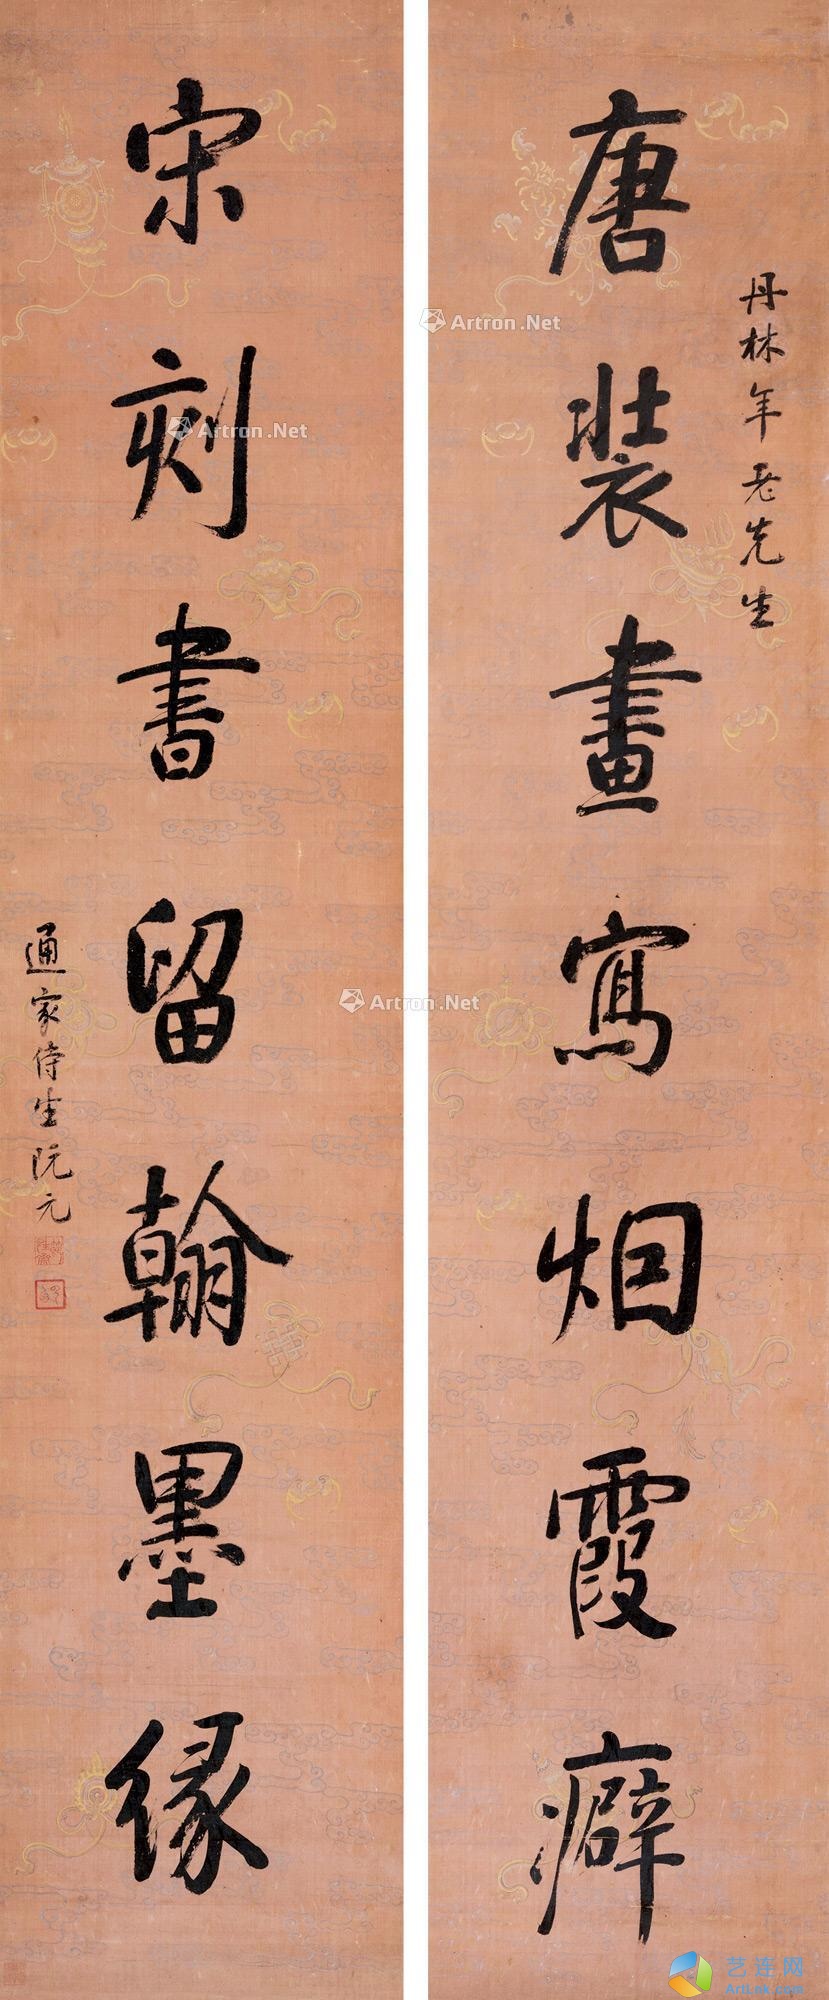 丹林年老先生
唐裝畫寫烟霞癖
宋刻書留翰墨緣
通家侍生阮元
Artron.Net
Artron.Net
Artron.Net
艺连网
ArtLink.com